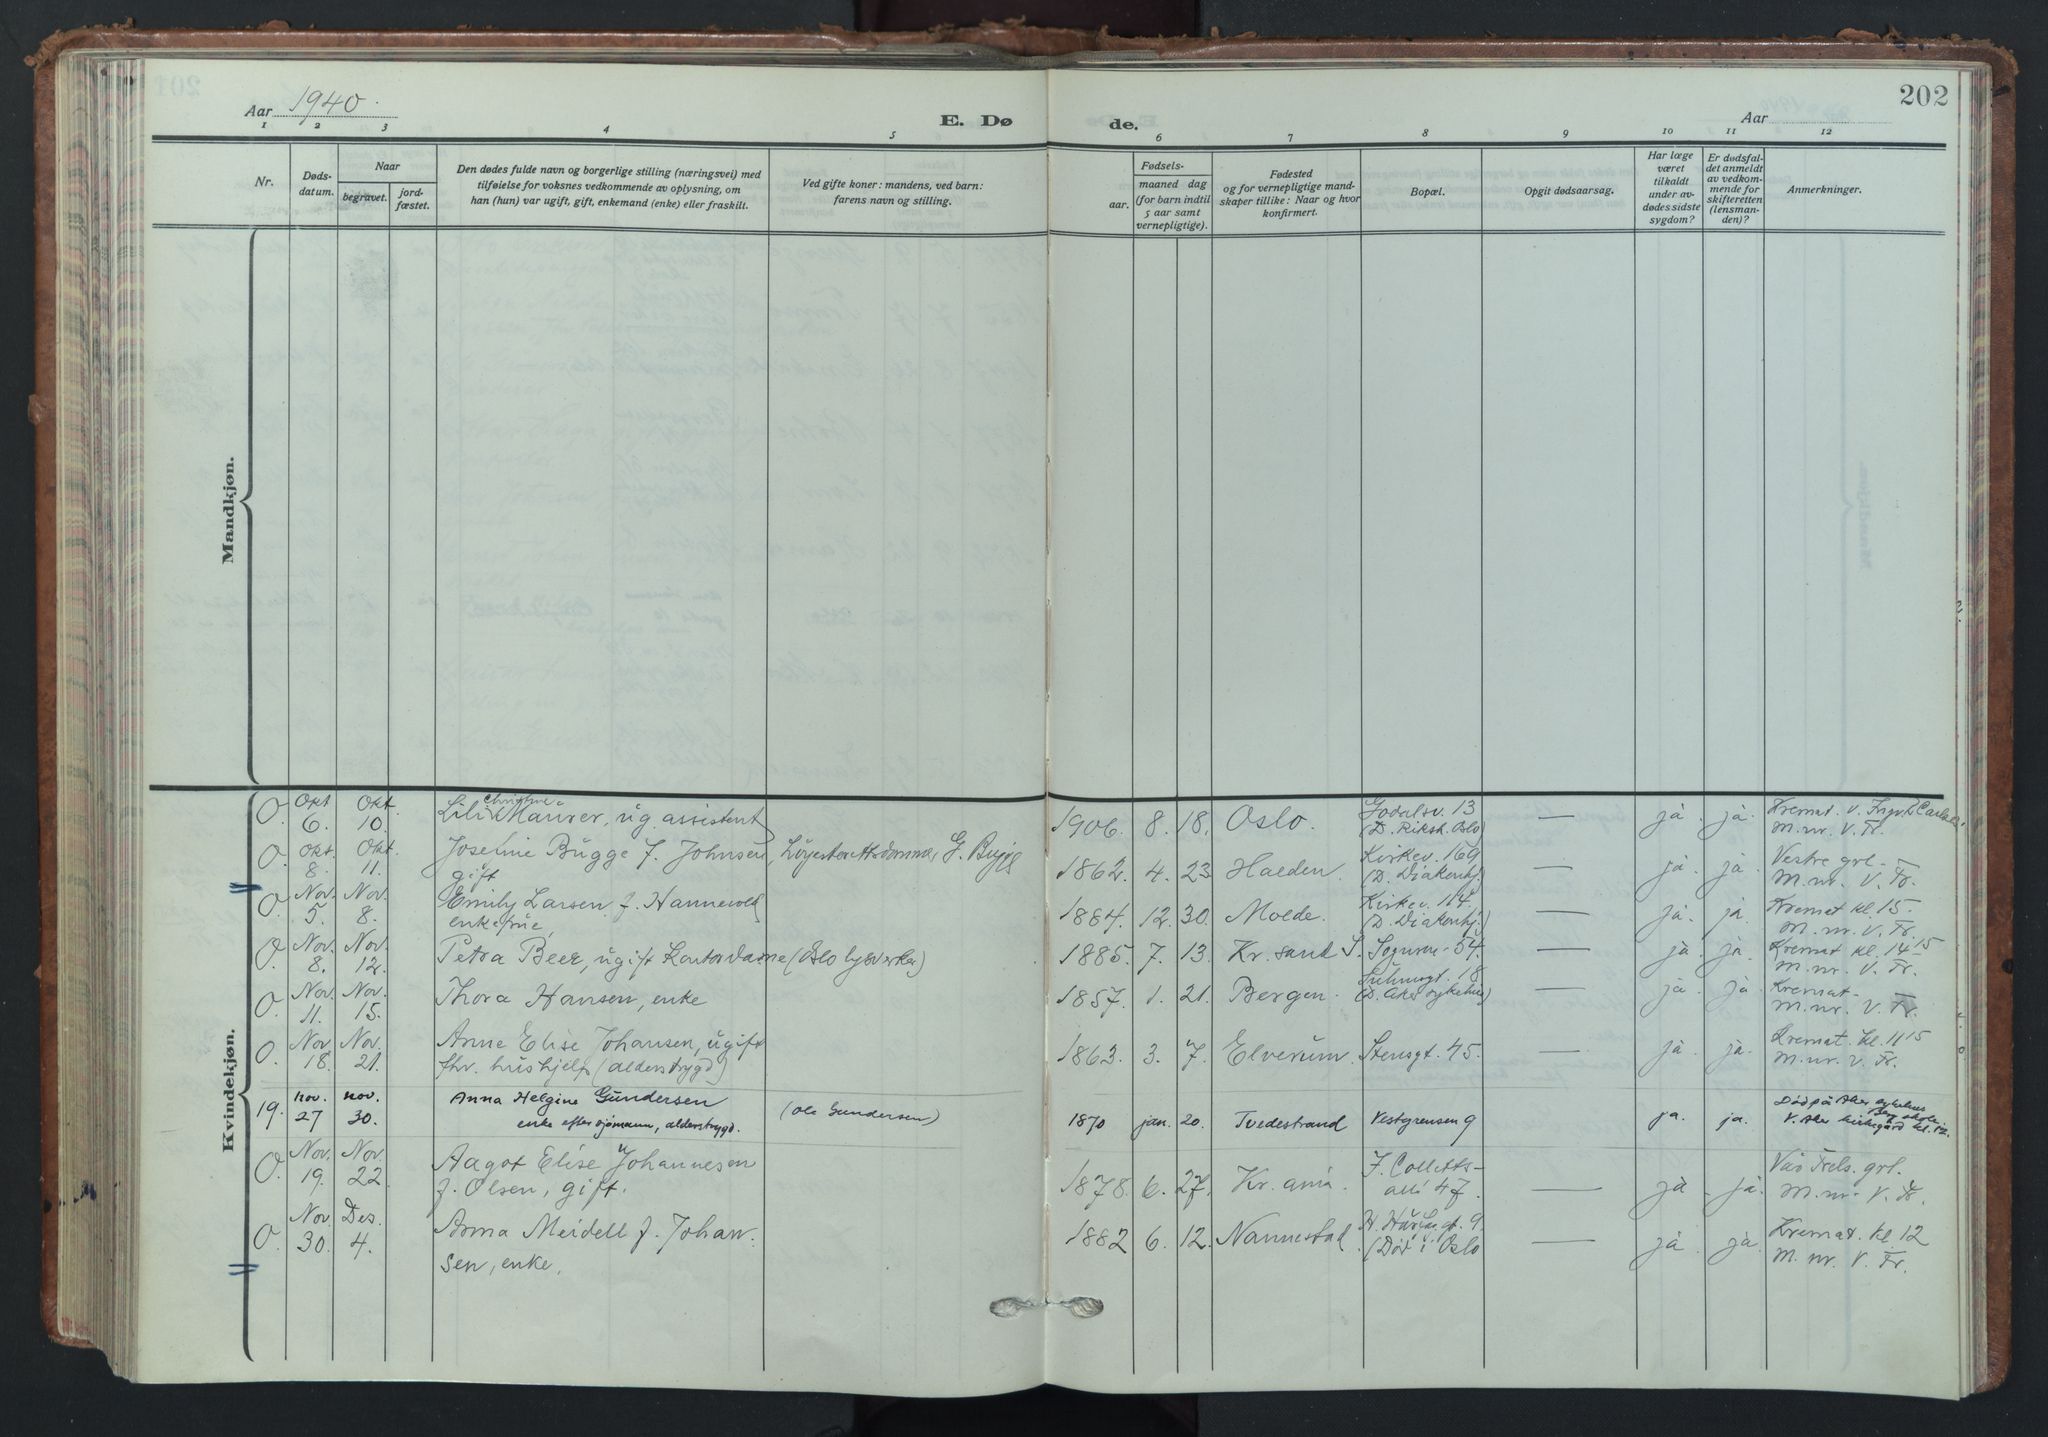 Aar 1940.
E. Døde.
202
Aar
1 2 3 4 5 6 7 8 9 10 11 12
Nr.
Døds-
datum.
Naar
begravet.
jord-
fæstet.
Den dødes fulde navn og borgerlige stilling (næringsvei) med
tilføielse for voksnes vedkommende av oplysning, om
han (hun) var ugift, gift, enkemand (enke) eller fraskilt.
Ved gifte koner: mandens, ved barn:
farens navn og stilling.
Fødsels-
aar.
maaned dag
(for barn indtil
5 aar samt
vernepligtige).
Fødested
og for vernepligtige mand-
skaper tillike: Naar og hvor
konfirmert.
Bopæl.
Opgit dødsaarsag.
Har læge
været
tilkaldt
under av-
dødes sidste
sygdom?
Er dødsfal-
det anmeldt
av vedkom-
mende for
skifteretten
(lensman-
den)?
Anmerkninger.
Mandkjøn.
Kvindekjøn.
O. Okt 6. Okt. 10. Lili Christine Maurer, ug. assistent 1906. 8. 18. Oslo. Godalsv. 13 (D. Riksh. Oslo) — ja. ja. Kremat. v.
M. nr. V. Fr.
O. Okt. 8. Okt. 11. Josefine Bugge f. Johnsen, gift Høyesterettsdommer G. Bugge 1862. 4. 23 Halden. Kirkev. 169 (D. Diakonhj.) — ja. ja. Vestre grl.
M. nr. V. Fr.
O. Nov. 5. Nov. 8. Emily Larsen f. Hannevold
enkefrue, 1884. 12. 30. Molde. Kirkev. 114. (D. Diakonhj.) — ja. ja. Kremat kl. 15.
M. nr. V. Fr.
O. Nov. 8. Nov. 12. Petra Beer, ugift Kontordame (Oslo lysverker) 1885. 7. 13. Kr. sand S. Sognsv. 54. — ja. ja. Kremat. kl. 14 15
M. nr. V. Fr.
O. Nov. 11. Nov. 15. Thora Hansen, enke 1857. 1. 21. Bergen. 18 (D. Aker sykehus) — ja. ja. Kremat-
M. nr. V. Fr.
O. Nov 18. Nov. 21. Anne Elise Johansen, ugift
fhv. hushjelp (alderstrygd) 1863. 3. 7. Elverum. Stensgt. 45. — ja. ja. Kremat. kl. 11 15
M. nr. V. Fr.
19. nov. 27 nov. 30. Anna Helgine Gundersen
enke efter sjømann, alderstrygd. (Ole Gundersen) 1870 jan. 20. Tvedestrand Vestgrensen 9 ja. ja. Död på Aker sykehus
V. Aker kirkegård kl. 12.
O Nov. 19. Nov. 22. Aagot Elise Johannesen
f. Olsen, gift. 1878. 6. 27. Kr. ania. J. Colletts-
allé 47. — ja ja. Vår Frels. grl.
M. nr. V. Fr.
O. Nov 30. Des. 4. Anna Meidell f. Johan-
sen, enke. 1882 6. 12. Nannestad. gt. 9. (Død i Oslo — ja ja. Kremat. kl 12
M. nr. V. Fr.